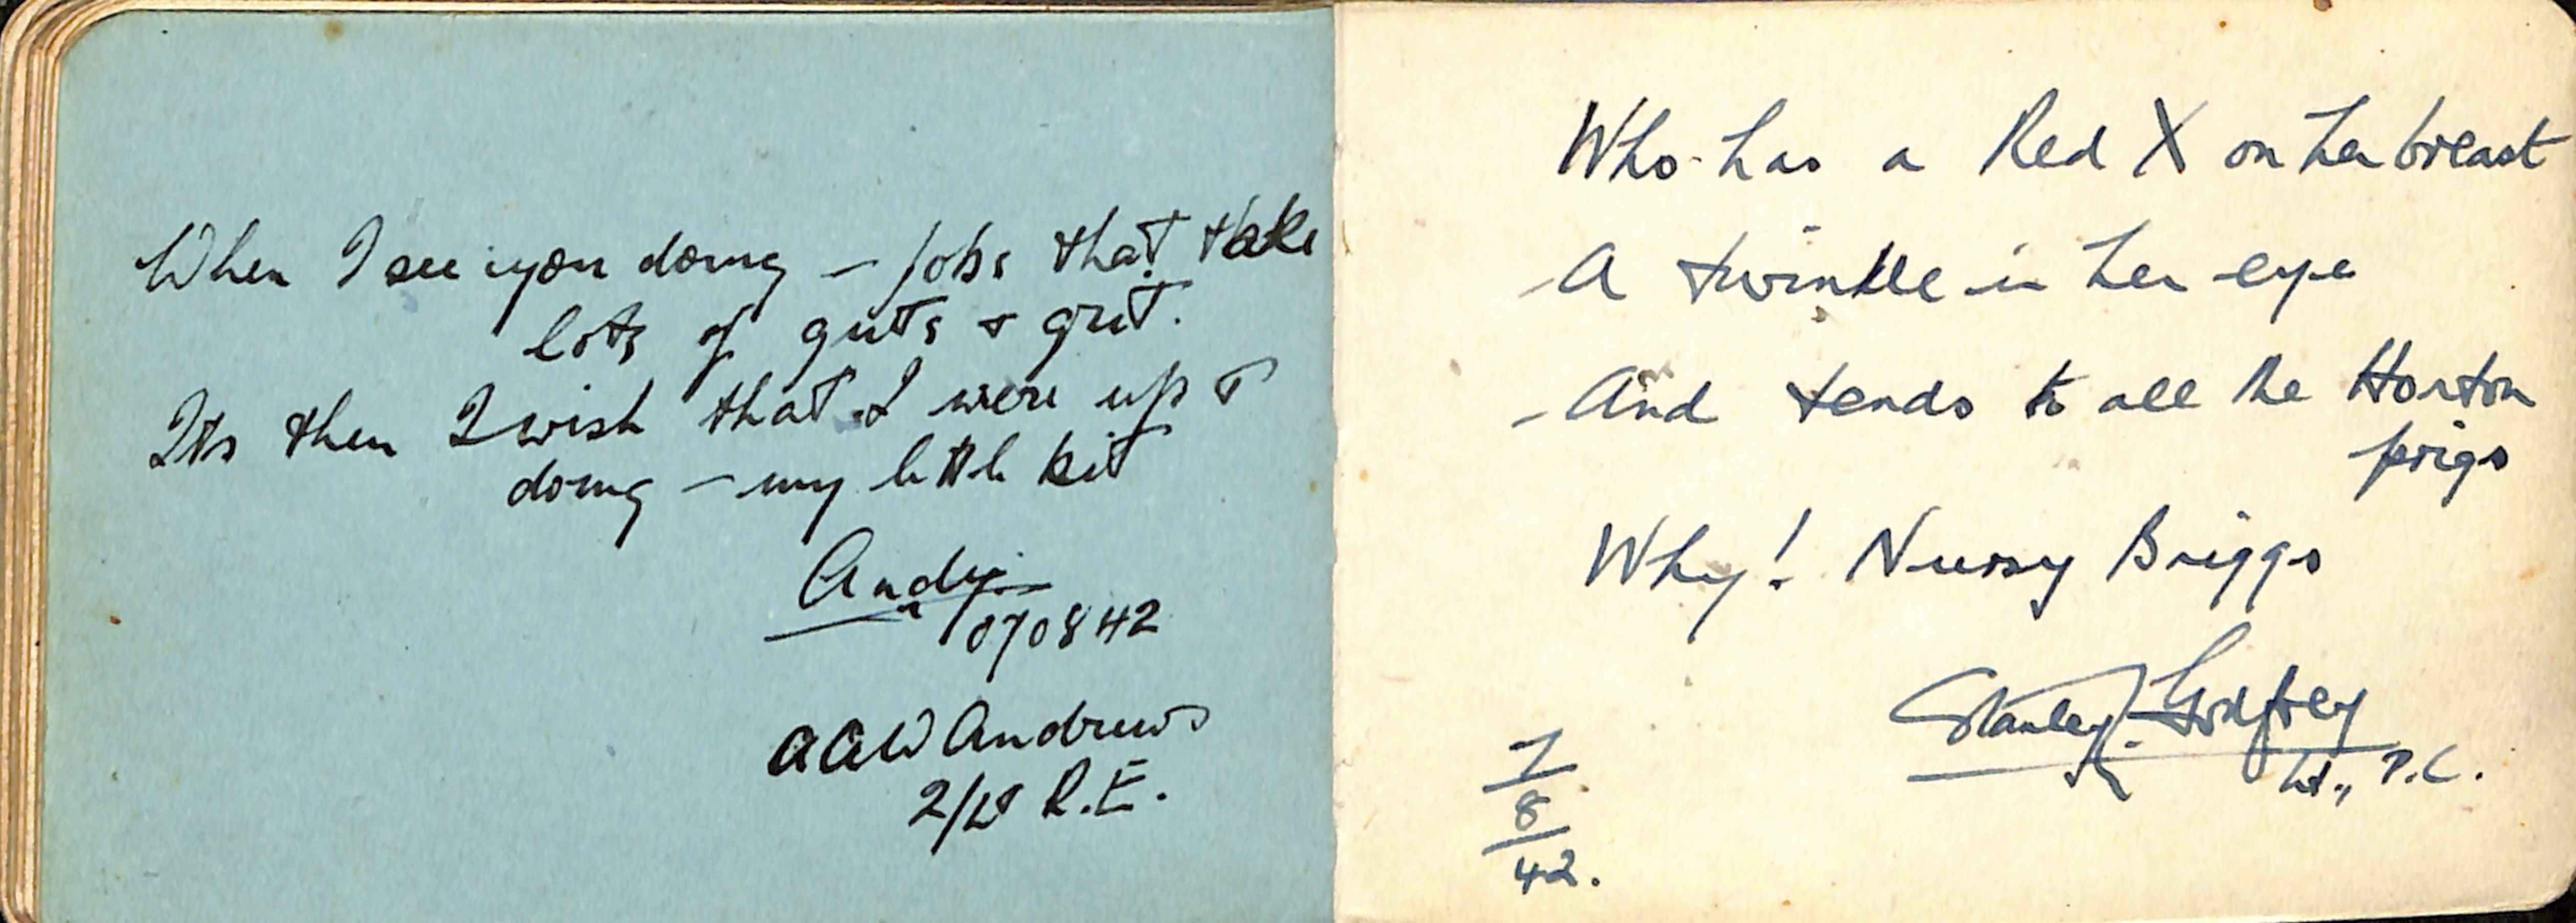 When I see you doing – jobs that take
lots of guts & grit.
Its then I wish that I were up &
doing – my little kit
Andy
070842
AAW Andrews
2/Lt R.E.
Who has a Red X on her breast
A twinkle in her eye
And tends to all the Horton
prigs
Why! Nursy Briggs
Stanley Godfrey
Lt., P.C.
7
8
42.